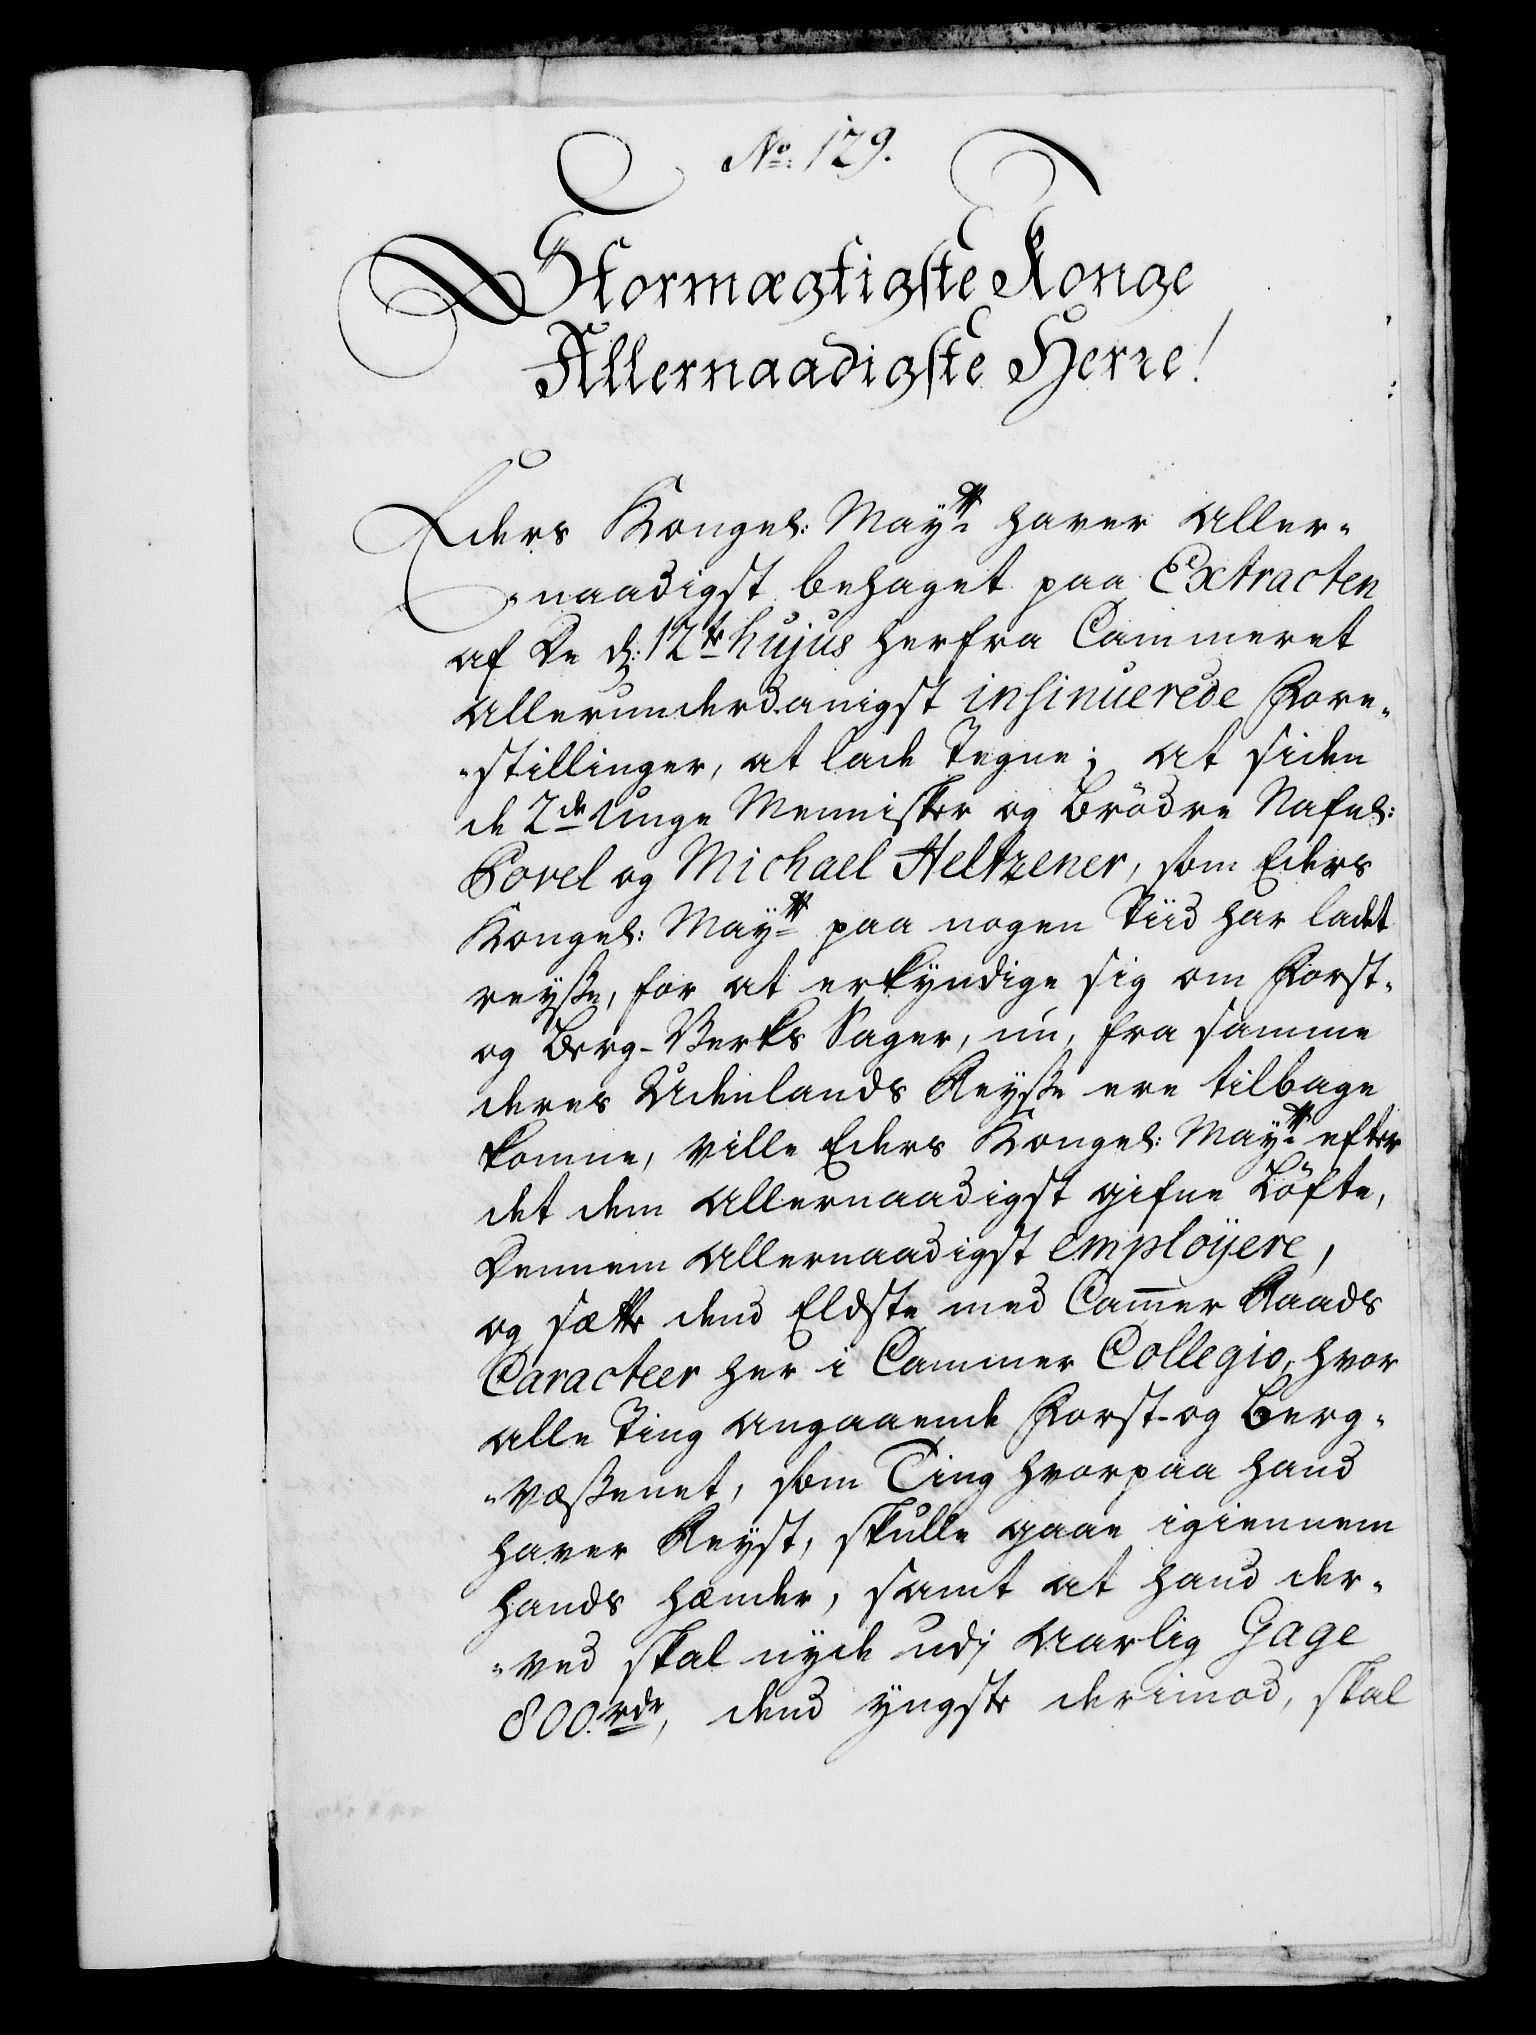 No: 129.
Stormægtigste Konge
Allernaadigste Herre!
Eders Kongel: Mayts haver Aller-
-naadigst behaget paa Extracten
af De d: 12te hujus herfra Cammeret
Allerunderdanigst insinuerede Fore-
-stillinger, at lade Tegne; at siden
de 2de Unge Mennisker og Brödre Nafnl:
Povel og Michael Heltzener, som Eders
Kongel: Mayts paa nogen Tiid har ladet
reyße, for at erkyndige sig om Forst-
og Berg-Verks Sager, nu, fra samme
deres Udenlands Reyße ere tilbage
komne, ville Eders Kongel: Mayts efter
det dem Allernaadigst gifne Löfte,
Dennem Allernaadigst employere,
og sætte dend Eldste med Cammer Raads
Caracteer her i Cammer Collegio, hvor
alle Ting angaaende Forst- og Berg-
-væßenet, som Ting hvorpaa hand
haver Reyst, skulle gaae igiennem
hands hænder, samt at hand der-
-ved skal nyde udj Aarlig Gage
800. rdr, dend yngste derimod, skal